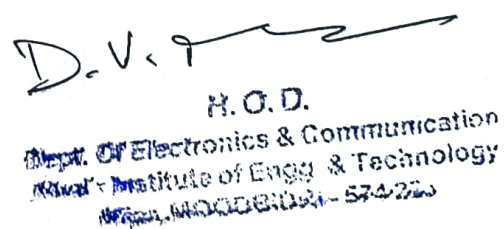 D.V.
H.O.D.
Dept. Of Electronics & Communication
Institute of Engg. & Technology
Mijar, MOODBIDRI - 574 225